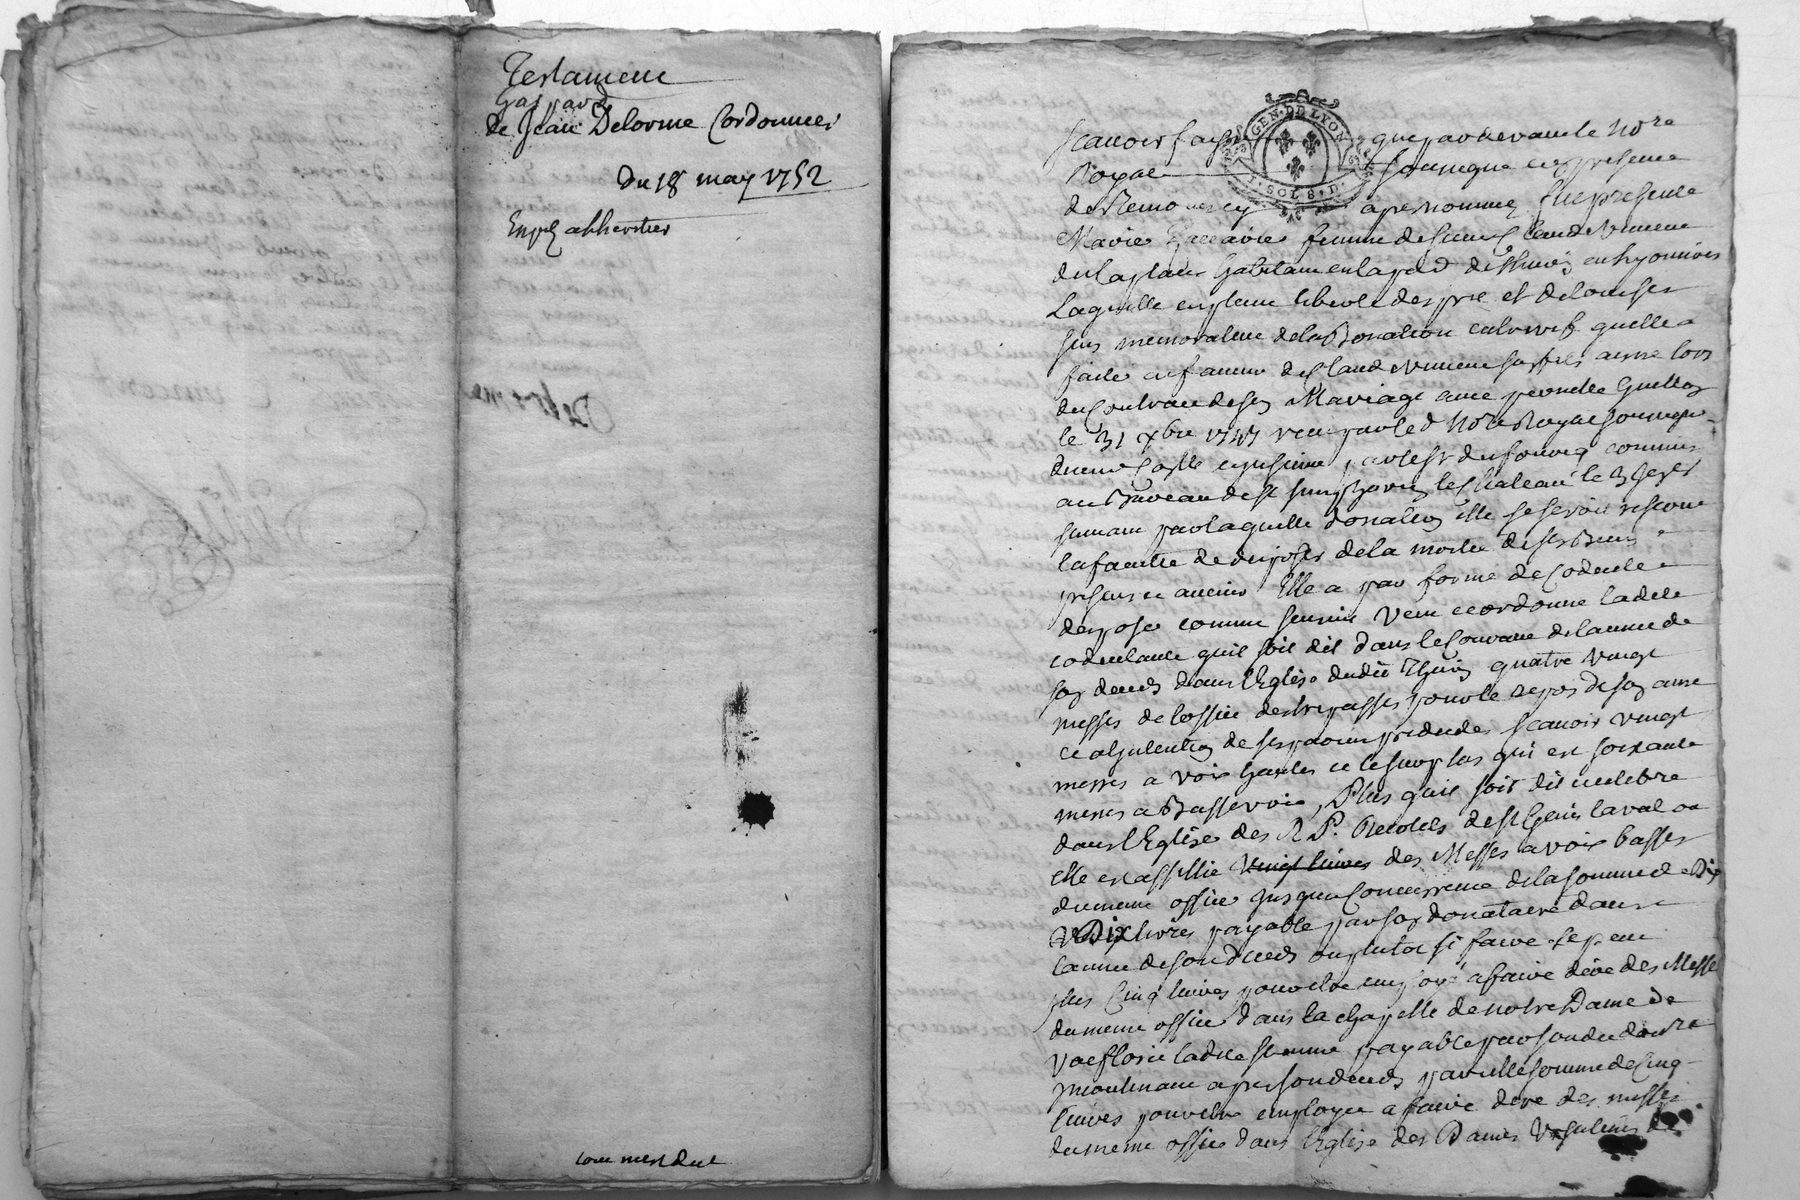 Testament
gaspard
de Jean Delorme Cordonnier
du 18 may 1752
Exped a lheritier
tout nest dut
Scavoir faisons que pardevant le Nore
GEN. DE LYON
SOLS. D.
Royal soussigne et en presence
de temoins cy apres nommez fut presente
Marie femme de sieur Claude Vincent
de la place habitante en la parr de Thurin en lyonnois
Laquelle en pleine liberte desprit et de tous ses
sens memorative de la Donation entrevifs quelle a
faite en faveur de Claude Vincent son fils aisne lors
du Contract de son Mariage avec pernette Guillon
le 31 xbre 1747 receu par led Nore Royal soussigne
duement controlle et insinue par le Sr dufourg commis
au Bureau de St simphorien le Chateau le 3 Janvier
suivant par laquelle donation elle se seroit reservee
la faculte de disposer de la moitie de ses Biens
presens et avenir Elle a par forme de Codicile
dispose comme sensuit Veut et ordonne ladite
codicilante quil soit dit dans le Courant de lannee de
son deceds dans lEglise dudit Thurin quatre vingt
messes de loffice des trepasses pour le repos de son ame
et a lintention de ses parens predecedes scavoir vingt
messes a voix hautes et le surplus qui est soixante
messes a Basse voix, Plus quil soit dit et celebre
dans lEglise des R P. Recolets de St Genis laval ou
elle est affiliee vingt livres des Messes a voix basses
du meme office jusqua Concurrence de la somme de Dix
Dix livres payable par son donataire dans
lannee de son deceds ou plutot si faire se peut
plus Cinq livres pour etre employe a faire dire des Messes
du meme office dans la chapelle de notre Dame de
Valfloris ladite somme payable par sondit donre
moitenant apres son deceds pareille somme de Cinq
livres pour etre employee a faire dire des messes
du meme office dans lEglise des Dames Vrsulines de